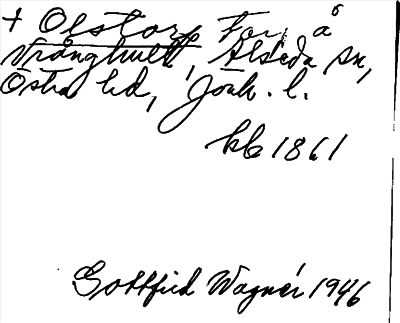 + Olstorp Torp å
Vrånghult, Alseda sn,
Östra hd, Jönk. l.
kb 1861
Gottfrid Wagnér 1946